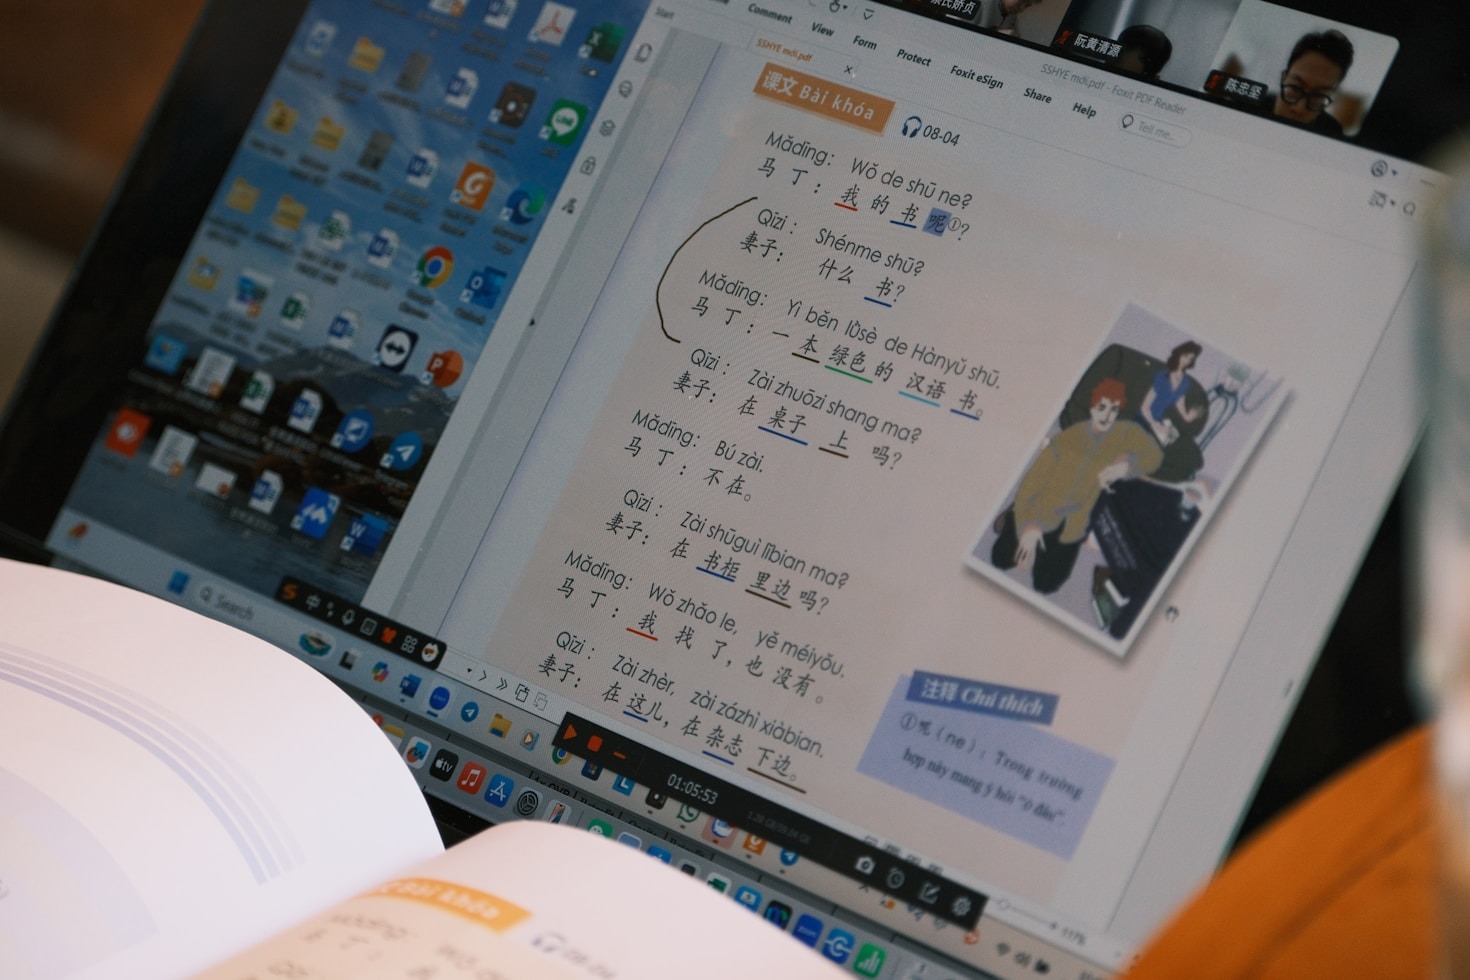 蔡氏娇贞
阮黄清源
陈忠坚
SSHYE mới.pdf - Foxit PDF Reader
Start
Comment View Form Protect Foxit eSign Share Help Tell me...
SSHYE mới.pdf
课文 Bài khóa 08-04
Mǎdīng: Wǒ de shū ne?
马丁: 我的书呢①?
Qīzi: Shénme shū?
妻子: 什么书?
Mǎdīng: Yì běn lǜsè de Hànyǔ shū.
马丁: 一本绿色的汉语书。
Qīzi: Zài zhuōzi shang ma?
妻子: 在桌子上吗?
Mǎdīng: Bú zài.
马丁: 不在。
Qīzi: Zài shūguì lǐbian ma?
妻子: 在书柜里边吗?
Mǎdīng: Wǒ zhǎo le, yě méiyǒu.
马丁: 我找了,也没有。
Qīzi: Zài zhèr, zài zázhì xiàbian.
妻子: 在这儿,在杂志下边。
注释 Chú thích
①呢(ne): Trong trường
hợp này mang ý hỏi "ở đâu"
Search
中
01:05:53
117%
tv
Bài khóa
08-04